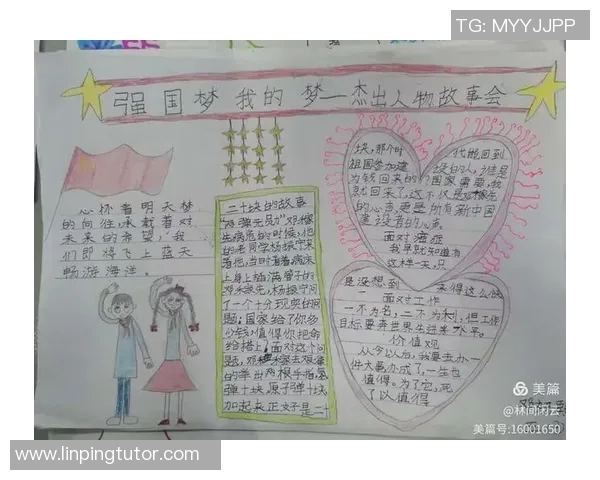 TG: MYYJJPP
强国梦 我的梦—杰出人物故事会
心怀着明天梦
的向往,承载着对
未来的希望,我
们即将飞上蓝天
畅游海洋。
二十块的故事
"两弹元勋"邓稼先
生病危的时候,他
的老同学杨振宁来
看他,当时看着病床
上身上插满管子的
邓稼先,杨振宁问
了一个十分现实的问
题:国家给了你多
少钱,值得你把命
给搭上,面对这个问
题,邓稼先艰难
的举出两根手指氢
弹十块,原子弹十块
加起来正好是二
块,那个时代能回到
祖国参加建设的人,谁是
为钱回来的?国家需要,我
就回来了,这不仅是邓稼先
的心声,更是所有新中国
建设者的心声
面对癌症
我早就知道有
这样一天,只
是没想到来得这么快
面对工作
一不为名,二不为利,但工作
目标要奔世界先进水平。
价值观
从今以后,我要去办一
件大事,办成了,一生也
值得。为了它,死
了以值得
美篇
@林间闲云
美篇号:16001650
www.linpingtutor.com